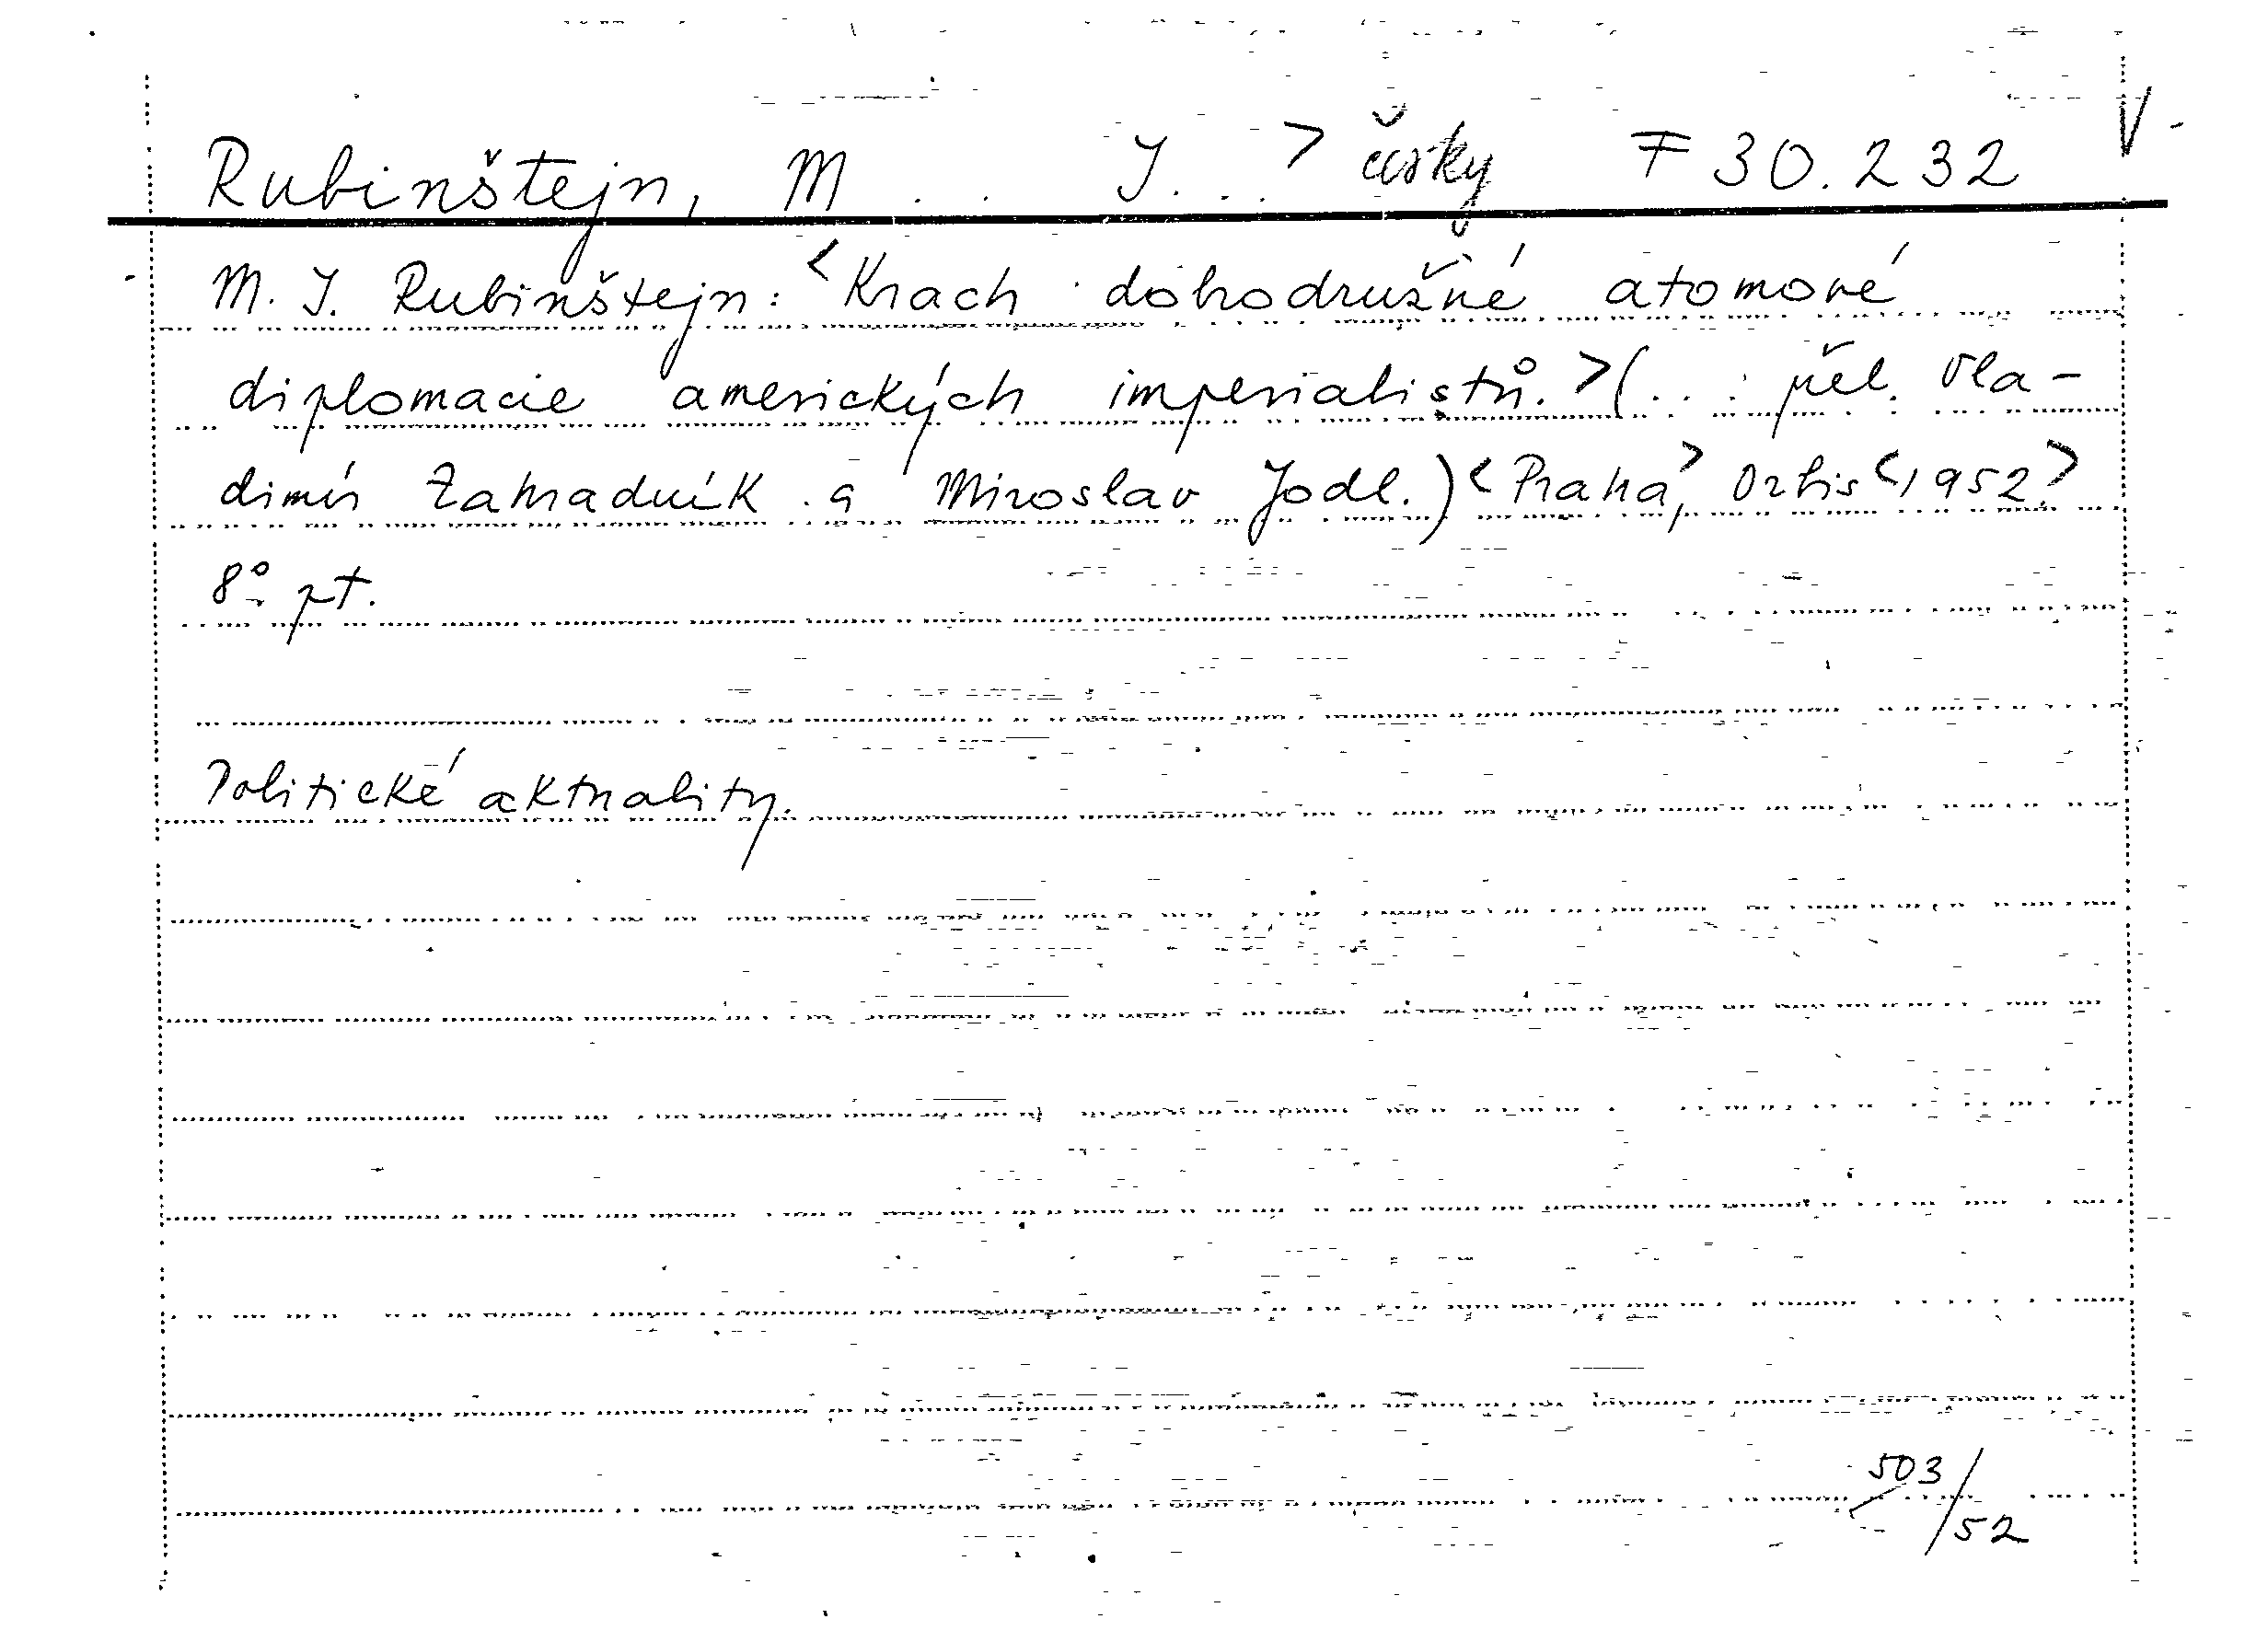 Rubinštejn, M . . J. . . > česky F 30.232 V
M. J. Rubinštejn: <Krach dobrodružné atomové
diplomacie amerických imperialistů.> (... přel. Vla-
dimír Zahradník a Miroslav Jodl.) <Praha>, Orbis <1952>
8° pt.
Politické aktuality.
503/52